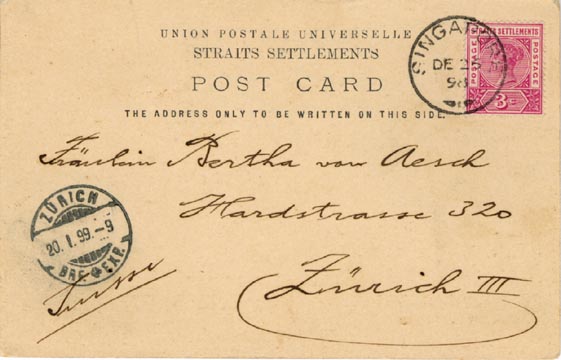 UNION POSTALE UNIVERSELLE
STRAITS SETTLEMENTS
POST CARD
THE ADDRESS ONLY TO BE WRITTEN ON THIS SIDE.
SINGAPORE
DE 25
98
STRAITS SETTLEMENTS
POSTAGE
POSTAGE
3
Fräulein Bertha von Aesch
Hardstrasse 320
Zürich III
Suisse
ZÜRICH
20.I.99.-9
BRF. EXP.